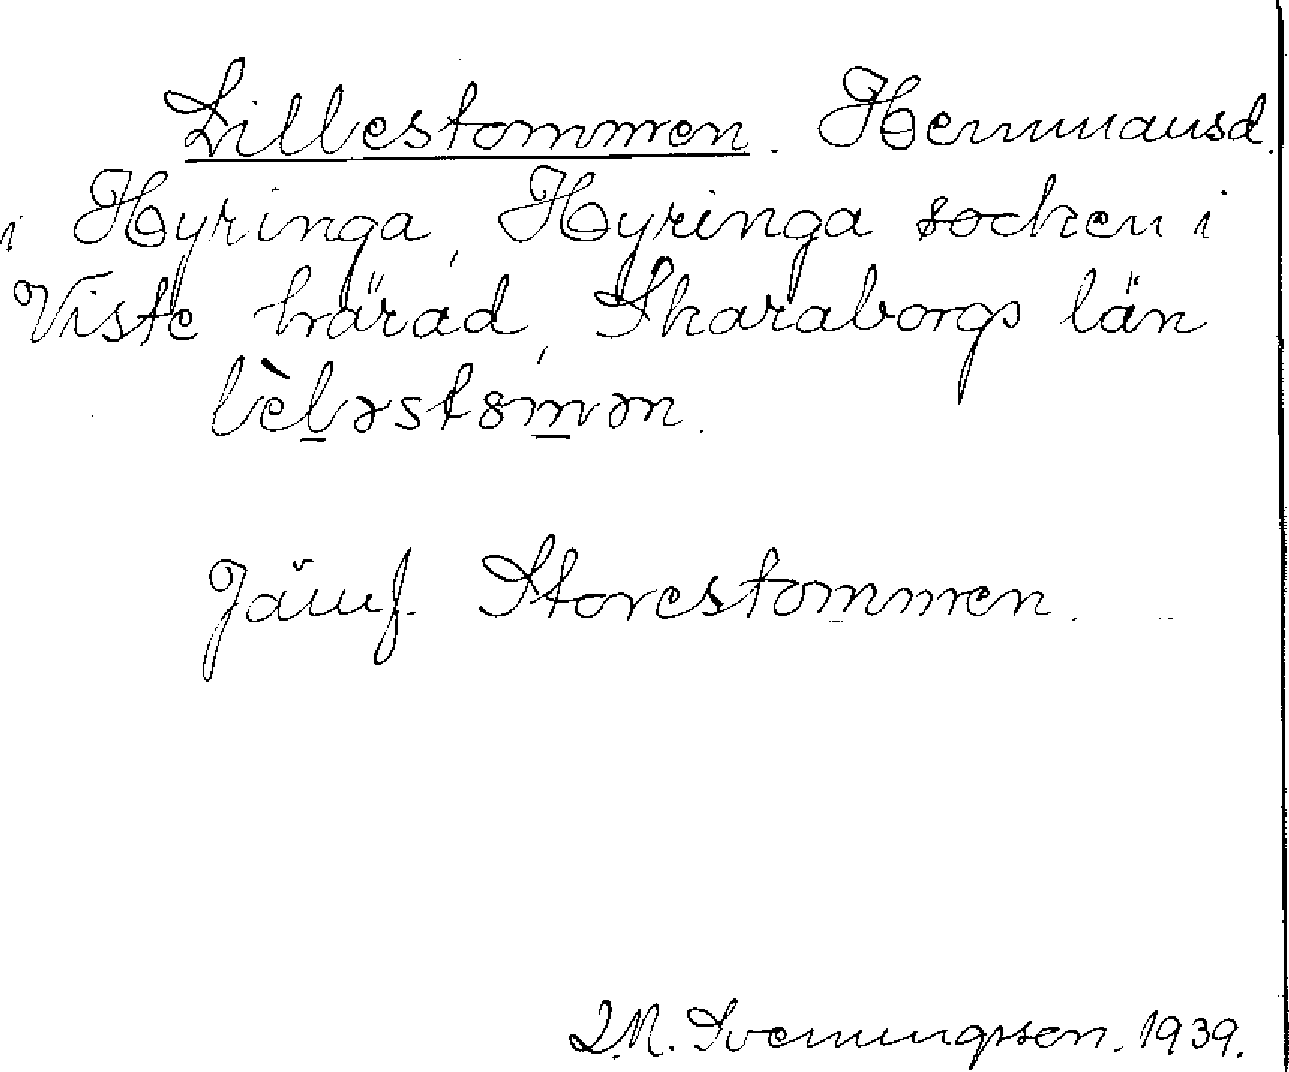 Lillestommen. Hemmansd.
i Hyringa, Hyringa socken i
Viste härad, Skaraborgs län
lèləstȣmən.
Jämf. Storestommen.
J.N. Svenningsson. 1939.